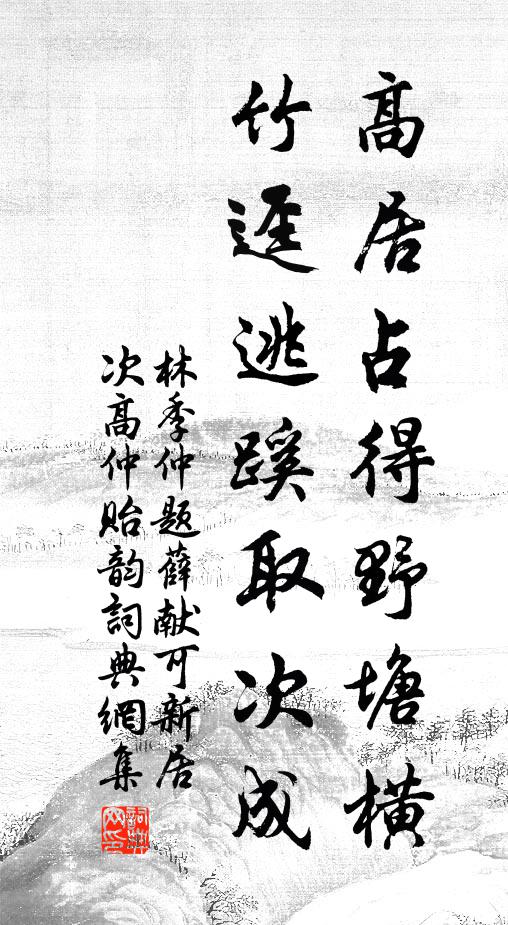 高居占得野塘橫
竹逕逃蹊取次成
林季仲題薛献可新居
次高仲貽韵詞典網集